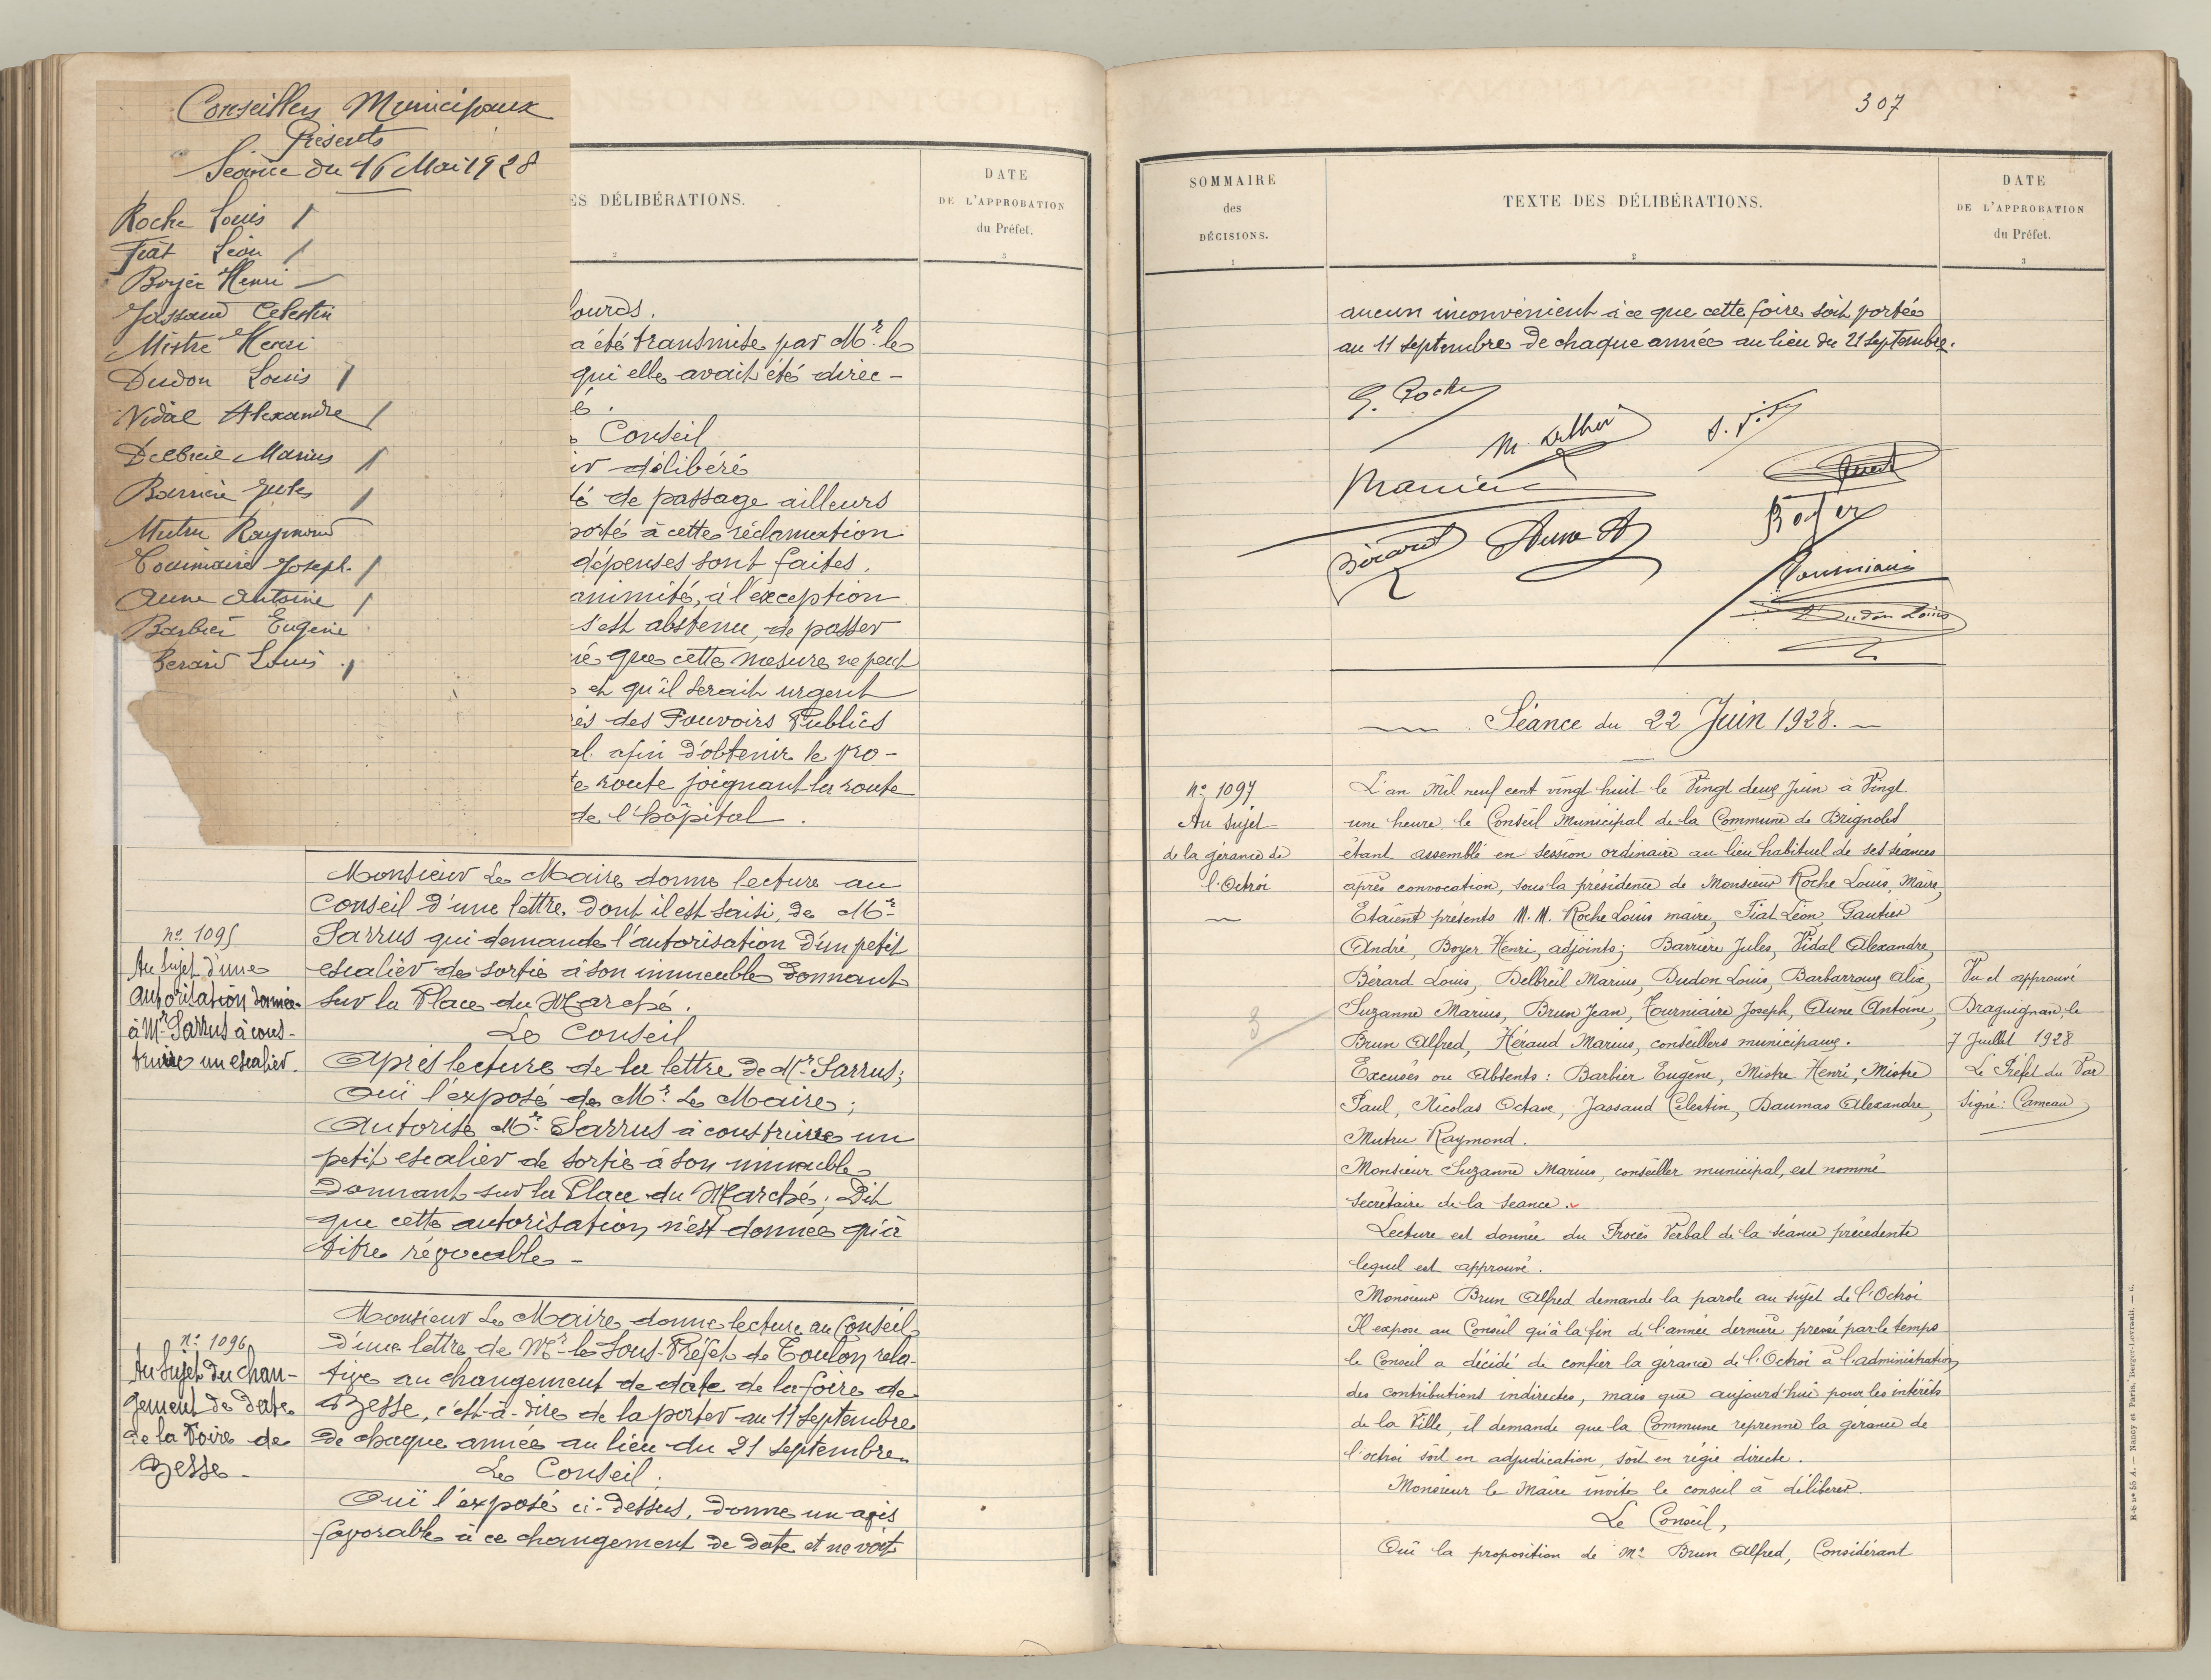 Conseillers Municipaux
Présents
Séance du 16 Mai 1928
Roche Louis /
Fiat Léon /
Boyer Henri —
Jassaud Célestin
Mistre Henri
Dudon Louis /
Vidal Alexandre /
Delbreil Marius /
Barrière Jules /
Mutru Raymond
Tourniaire Joseph. /
Aune Antoine /
Barbier Eugène
Bérard Louis /
ES DÉLIBÉRATIONS.
2
DATE
DE L'APPROBATION
du Préfet.
3
lourds.
a été transmise par Mr. le
qui elle avait été direc-
é.
Conseil
ir délibéré
té de passage ailleurs
porté à cette réclamation
dépenses sont faites.
animité, à l'exception
s'est abstenu, de passer
ré que cette mesure ne peut
et qu'il serait urgent
ès des Pouvoirs Publics
al. afin d'obtenir le pro-
te route joignant la route
de l'hôpital.
Monsieur Le Maire donne lecture au
Conseil d'une lettre dont il est saisi, de Mr.
no 1095
Sarrus qui demande l'autorisation d'un petit
Au sujet d'une
escalier de sortie à son immeuble donnant
autorisation donnée
sur la Place du Marché.
à Mr. Sarrus à cons-
Le Conseil
truire un escalier.
Après lecture de la lettre de Mr. Sarrus;
Ouï l'exposé de Mr. Le Maire;
Autorise Mr. Sarrus à construire un
petit escalier de sortie à son immeuble
donnant sur la Place du Marché; Dit
que cette autorisation n'est donnée qu'à
titre révocable –
Monsieur Le Maire donne lecture au Conseil
no 1096
d'une lettre de Mr. le Sous-Préfet de Toulon rela-
Au sujet du chan-
tive au changement de date de la foire de
gement de date
Besse, c'est-à-dire de la porter au 11 septembre
de la Foire de
de chaque année au lieu du 21 septembre.
Besse –
Le Conseil.
Ouï l'exposé ci-dessus, donne un avis
favorable à ce changement de date et ne voit
307
SOMMAIRE
des
DÉCISIONS.
1
TEXTE DES DÉLIBÉRATIONS.
2
DATE
DE L'APPROBATION
du Préfet.
3
aucun inconvénient à ce que cette foire soit portée
au 11 septembre de chaque année au lieu du 21 septembre.
Roche
Barrière
Bérard
Aune A
Boyer
Tourniaire
Dudon Louis
Séance du 22 Juin 1928.
no 1097
Au sujet
de la gérance de
l'Octroi
L'an mil neuf cent vingt huit le Vingt deux Juin à Vingt
une heure le Conseil Municipal de la Commune de Brignoles
étant assemblé en session ordinaire au lieu habituel de ses séances
après convocation, sous la présidence de Monsieur Roche Louis, Maire,
Etaient présents M.M. Roche Louis maire, Fiat Léon, Gautier
André, Boyer Henri, adjoints; Barrière Jules, Vidal Alexandre,
Bérard Louis, Delbreil Marius, Dudon Louis, Barbarroux Alix,
Suzanne Marius, Brun Jean, Tourniaire Joseph, Aune Antoine,
Brun Alfred, Héraud Marius, conseillers municipaux.
Excusés ou Absents: Barbier Eugène, Mistre Henri, Mistre
Paul, Nicolas Octave, Jassaud Célestin, Daumas Alexandre,
Mutru Raymond.
Monsieur Suzanne Marius, conseiller municipal, est nommé
secrétaire de la séance.
Lecture est donnée du Procès Verbal de la séance précédente
lequel est approuvé.
Monsieur Brun Alfred demande la parole au sujet de l'Octroi
Il expose au Conseil qu'à la fin de l'année dernière pressé par le temps
le Conseil a décidé de confier la gérance de l'Octroi à l'administration
des contributions indirectes, mais que aujourd'hui pour les intérêts
de la Ville, il demande que la Commune reprenne la gérance de
l'octroi soit en adjudication, soit en régie directe.
Monsieur le Maire invite le conseil à délibérer.
Le Conseil,
Ouï la proposition de Mr. Brun Alfred, Considérant
Vu et approuvé
Draguignan, le
7 Juillet 1928
Le Préfet du Var
Signé: Cameau
3